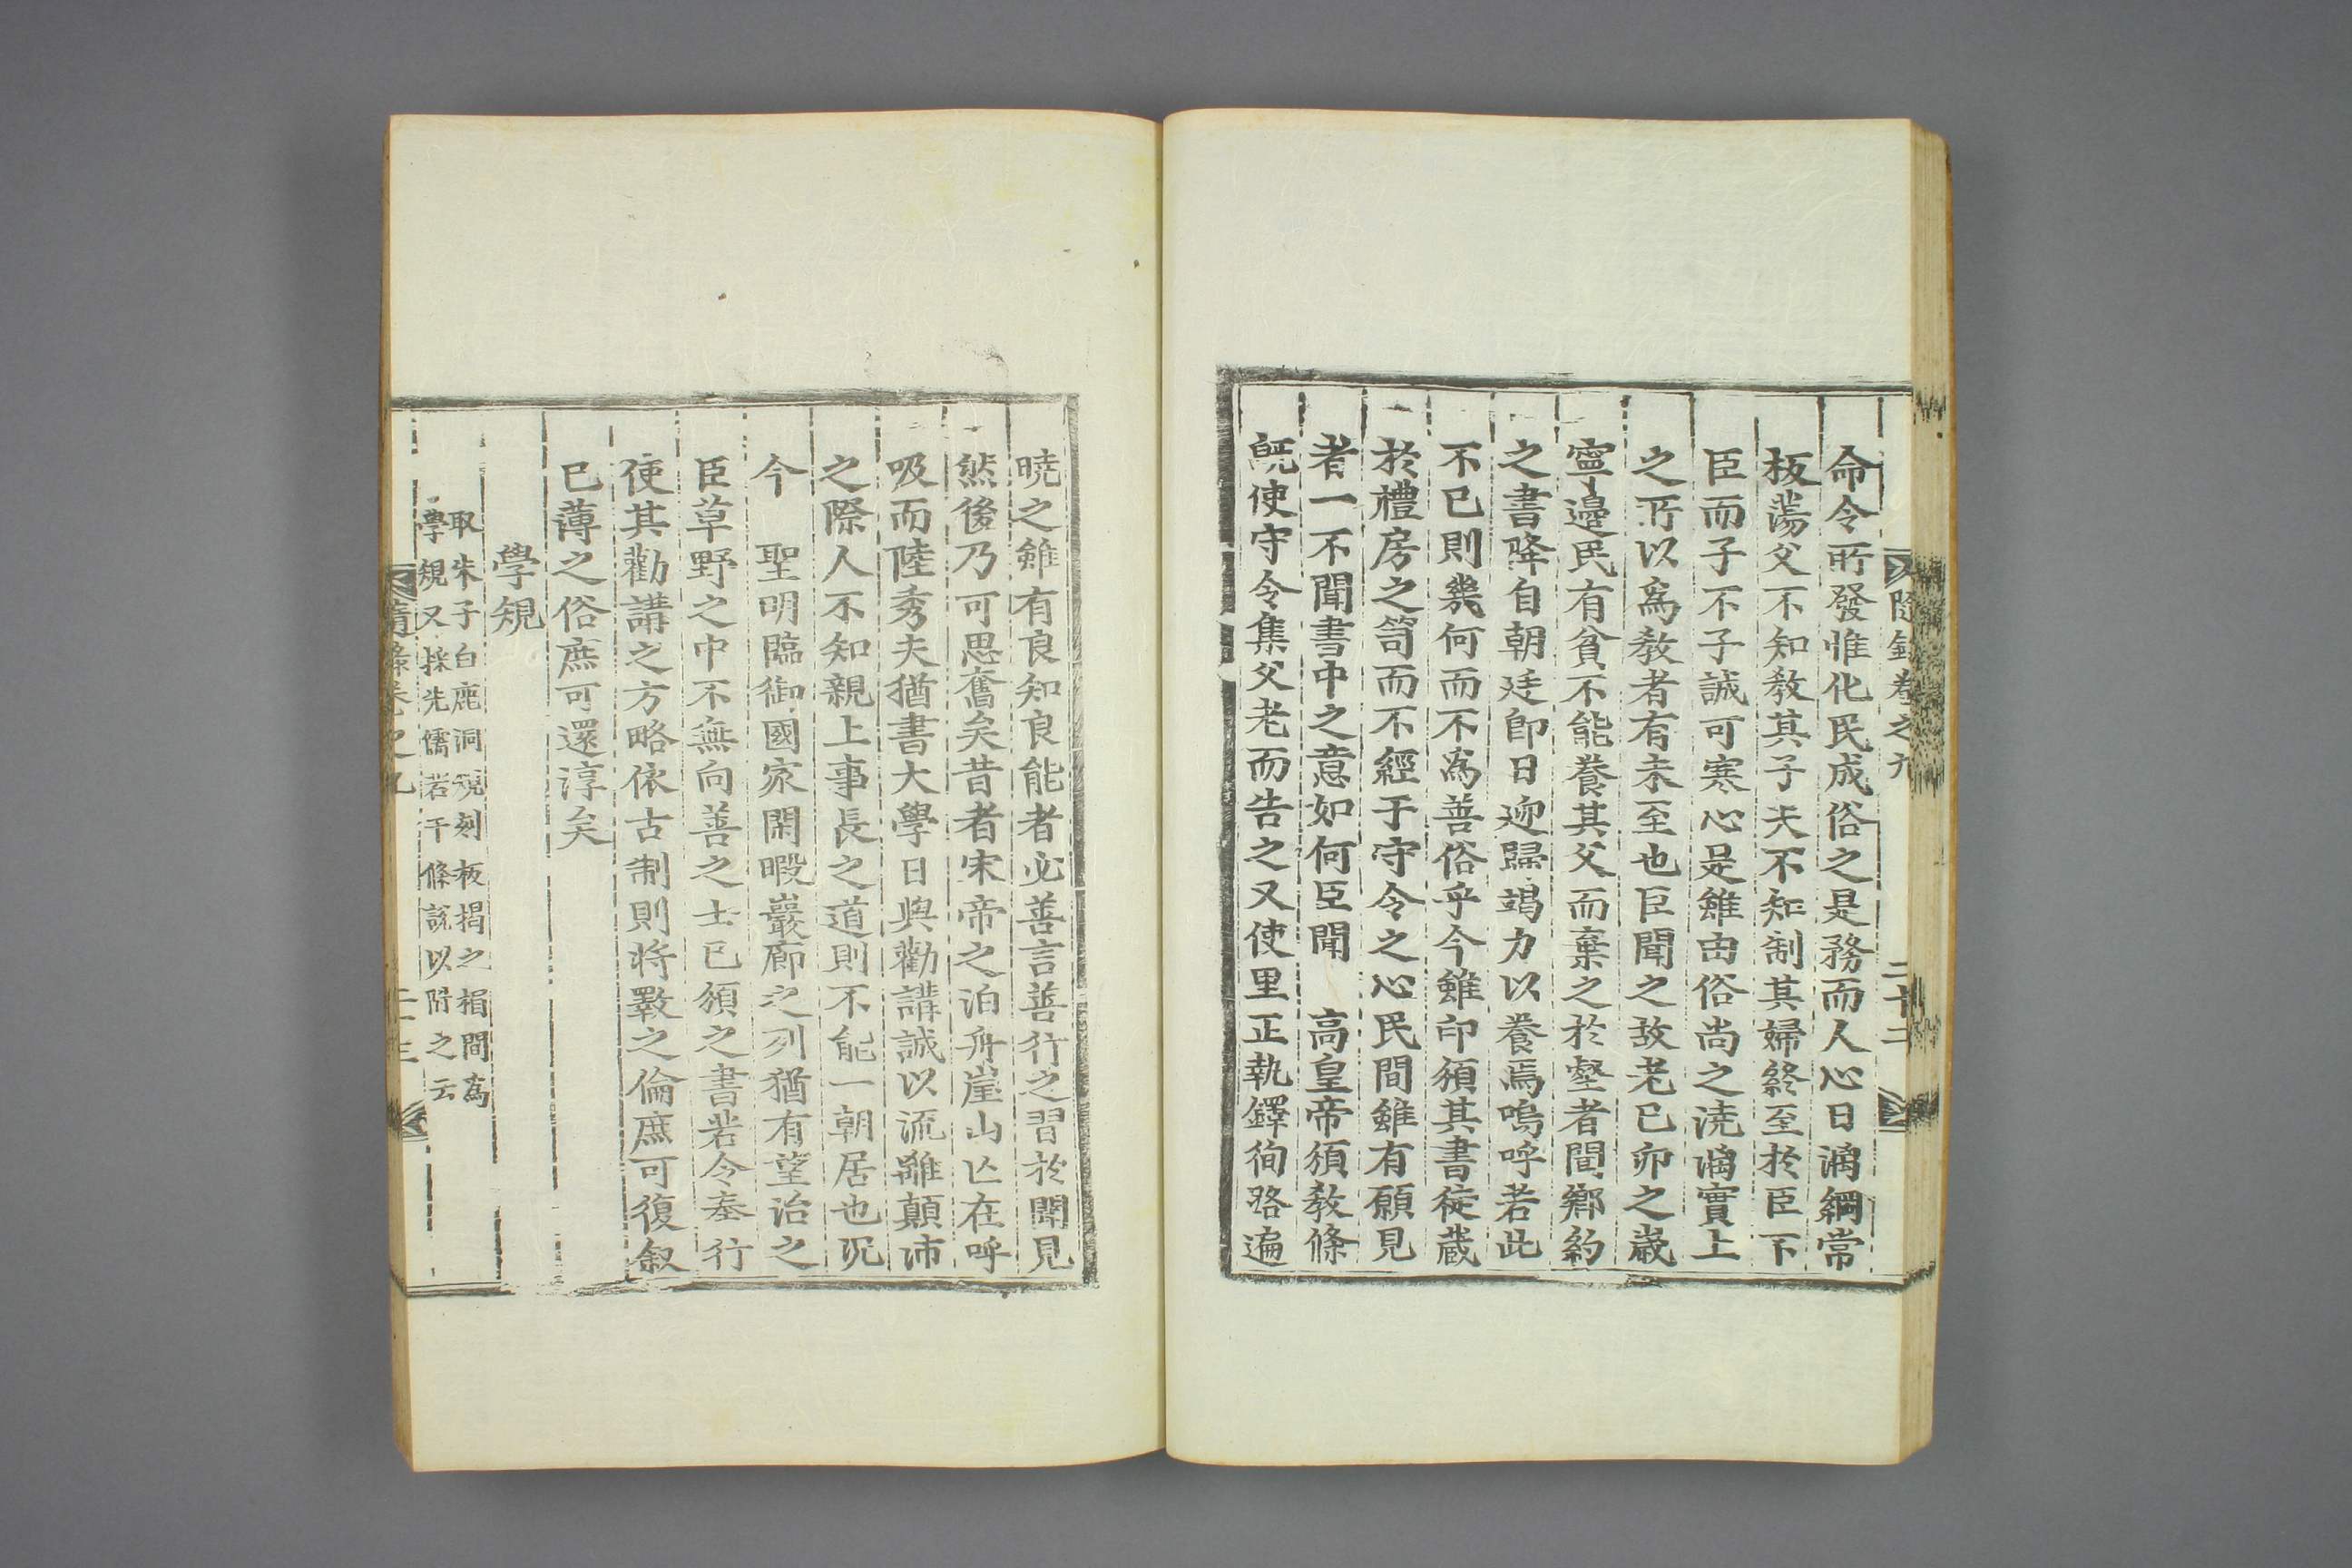 隨錄卷之九
二十二
命令所發惟化民成俗之是務而人心日漓綱常
板蕩父不知敎其子夫不知制其婦終至於臣下
臣而子不子誠可寒心是雖由俗尚之澆漓實上
之所以爲敎者有未至也臣聞之故老己卯之歲
寧邊民有貧不能養其父而棄之於壑者間鄕約
之書降自朝廷卽日迎歸竭力以養焉嗚呼若此
不已則幾何而不爲善俗乎今雖印頒其書徒藏
於禮房之笥而不經于守令之心民間雖有願見
者一不聞書中之意如何臣聞　高皇帝頒敎條
旣使守令集父老而告之又使里正執鐸徇路遍
曉之雖有良知良能者必善言善行之習於聞見
然後乃可思奮矣昔者宋帝之泊舟崖山亡在呼
吸而陸秀夫猶書大學日與勸講誠以流離顚沛
之際人不知親上事長之道則不能一朝居也況
今　聖明臨御國家閑暇巖廊之列猶有望治之
臣草野之中不無向善之士已頒之書若令奉行
使其勸講之方略依古制則將斁之倫庶可復敘
已薄之俗庶可還淳矣
學規
取朱子白鹿洞規刻板揭之楣間爲
學規又採先儒若干條說以附之云
隨錄卷之九
二十三